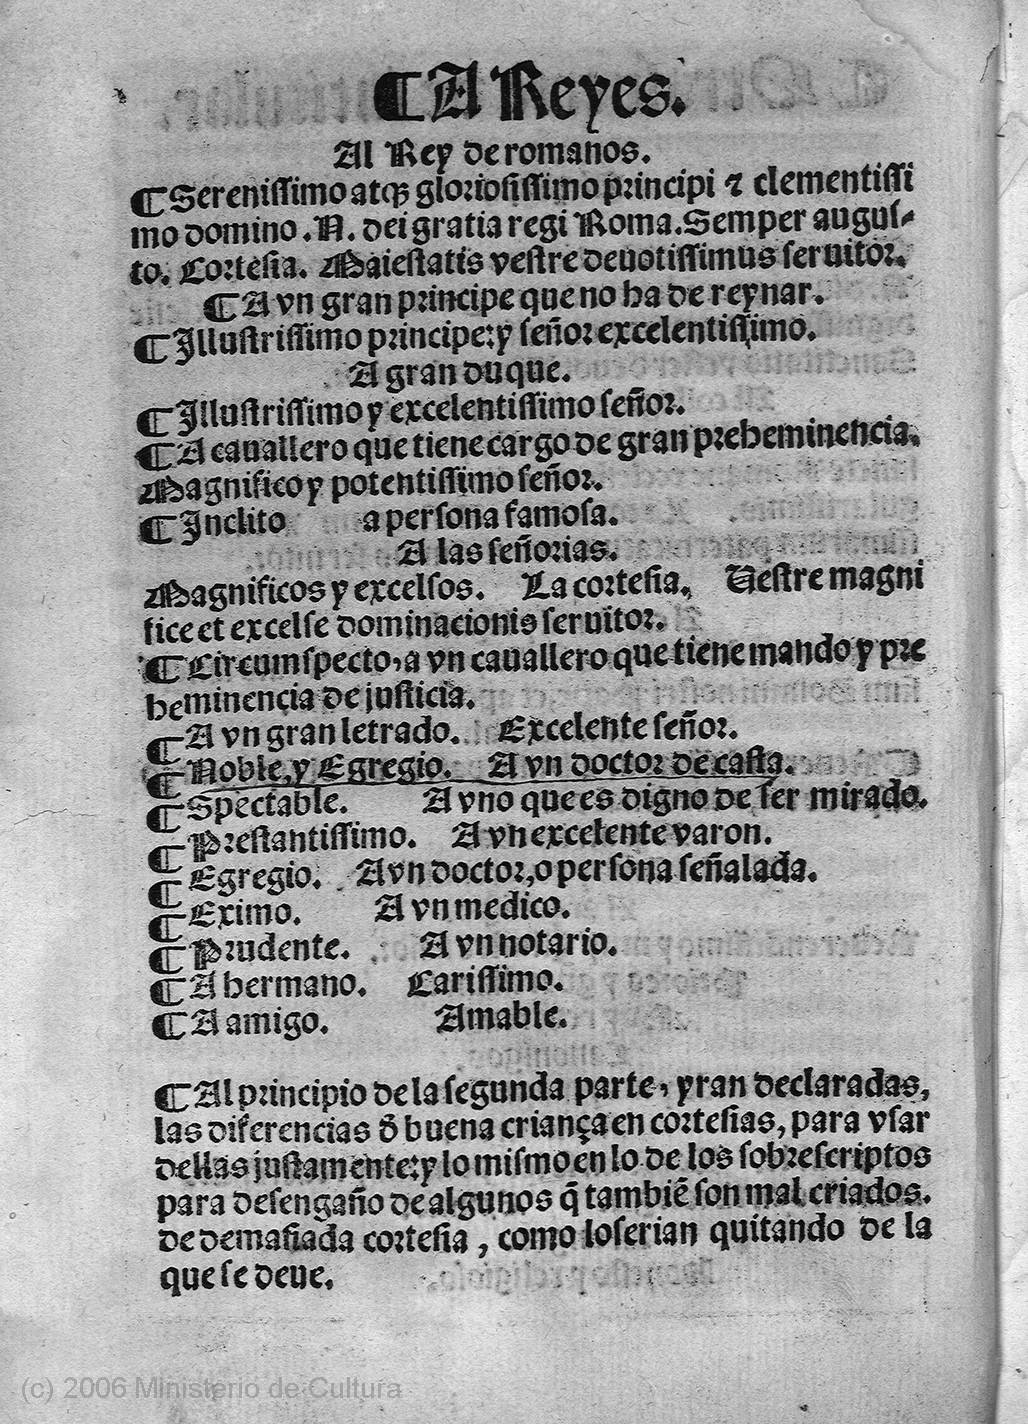 ¶A Reyes.
Al Rey de romanos.
¶Sereniſſimo atqꝫ glorioſiſſimo principi ⁊ clementiſſi
mo domino .N. dei gratia regi Roma. Semper auguſ-
to. Corteſia. Maieſtatis veſtre deuotiſſimus ſeruitor.
¶A vn gran principe que no ha de reynar.
¶Illuſtriſſimo principe: y ſeñor excelentiſſimo.
A gran duque.
¶Illuſtriſſimo y excelentiſſimo ſeñor.
¶A cauallero que tiene cargo de gran preheminencia.
Magnifico y potentiſſimo ſeñor.
¶Inclito a perſona famoſa.
A las ſeñorias.
Magnificos y excelſos. La corteſia. Ueſtre magni
fice et excelſe dominacionis ſeruitor.
¶Circumſpecto, a vn cauallero que tiene mando y pre
heminencia de juſticia.
¶A vn gran letrado. Excelente ſeñor.
¶Noble, y Egregio. A vn doctor de caſta.
¶Spectable. A vno que es digno de ſer mirado.
¶Preſtantiſſimo. A vn excelente varon.
¶Egregio. A vn doctor, o perſona ſeñalada.
¶Eximo. A vn medico.
¶Prudente. A vn notario.
¶A hermano. Cariſſimo.
¶A amigo. Amable.
¶Al principio de la ſegunda parte, yran declaradas,
las diferencias d̄ buena criança en corteſias, para vſar
dellas juſtamente: y lo miſmo en lo de los ſobreſcriptos
para deſengaño de algunos q̃ tambiẽ ſon mal criados.
de demaſiada corteſia, como loſerian quitando de la
que ſe deue.
(c) 2006 Ministerio de Cultura